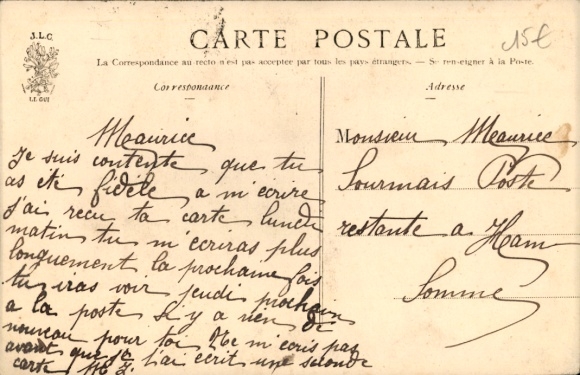 J.L.C.
LE GUI
CARTE POSTALE
15€
La Correspondance au recto n'est pas acceptée par tous les pays étrangers. — Se renseigner à la Poste.
Correspondance
Maurice
Je suis contente que tu
as été fidéle a m'écrire
j'ai recu ta carte lundi
matin tu m'écriras plus
longuement la prochaine fois
tu iras voir jeudi prochain
a la poste s'il y a rien de
nouveau pour toi Ne m'écris pas
avant que je t'ai écrit une seconde
carte
Adresse
Monsieur Maurice
Sourmais Poste
restante a Ham
Somme